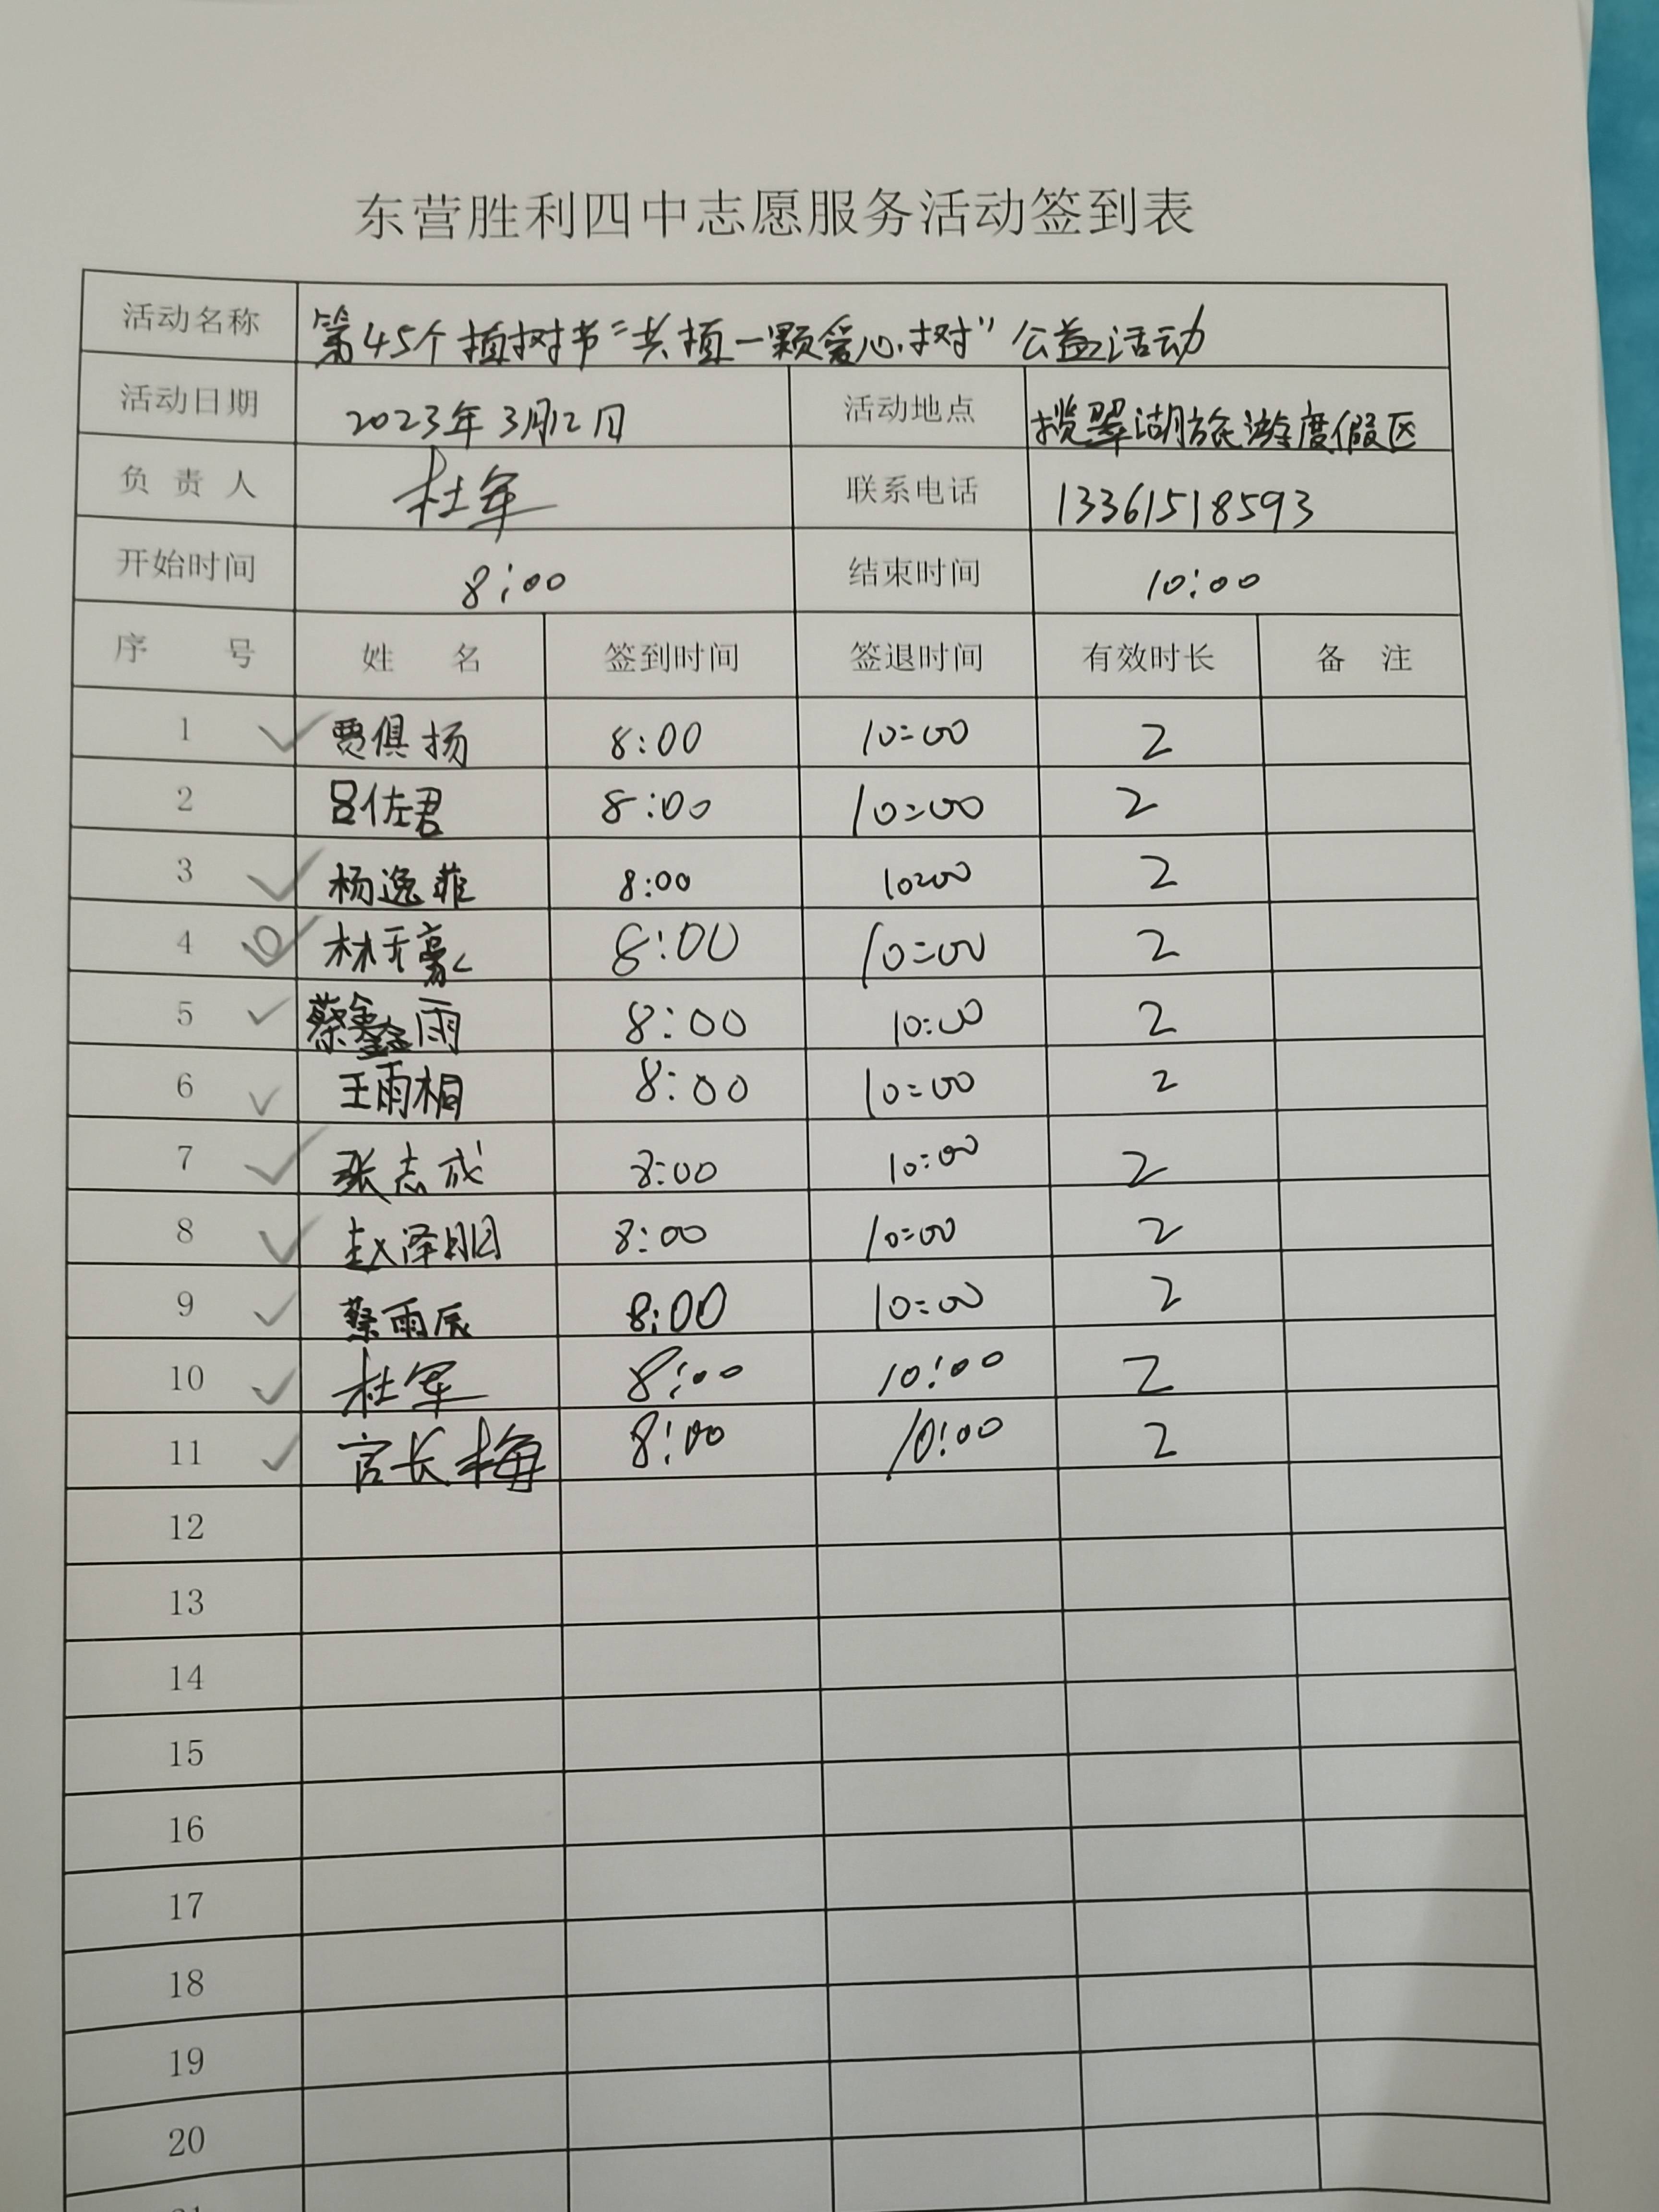 东营胜利四中志愿服务活动签到表
活动名称 第45个植树节"共植一颗爱心树"公益活动
活动日期 2023年3月12日 活动地点 揽翠湖旅游度假区
负责人 杜军 联系电话 13361518593
开始时间 8:00 结束时间 10:00
序号 姓名 签到时间 签退时间 有效时长 备注
1 贾俱扬 8:00 10:00 2
2 吕佐君 8:00 10:00 2
3 杨逸菲 8:00 10:00 2
4 林 豪 8:00 10:00 2
5 蔡鑫雨 8:00 10:00 2
6 王雨桐 8:00 10:00 2
7 张志成 8:00 10:00 2
8 赵泽 8:00 10:00 2
9 蔡雨辰 8:00 10:00 2
10 杜军 8:00 10:00 2
11 官长梅 8:00 10:00 2
12
13
14
15
16
17
18
19
20